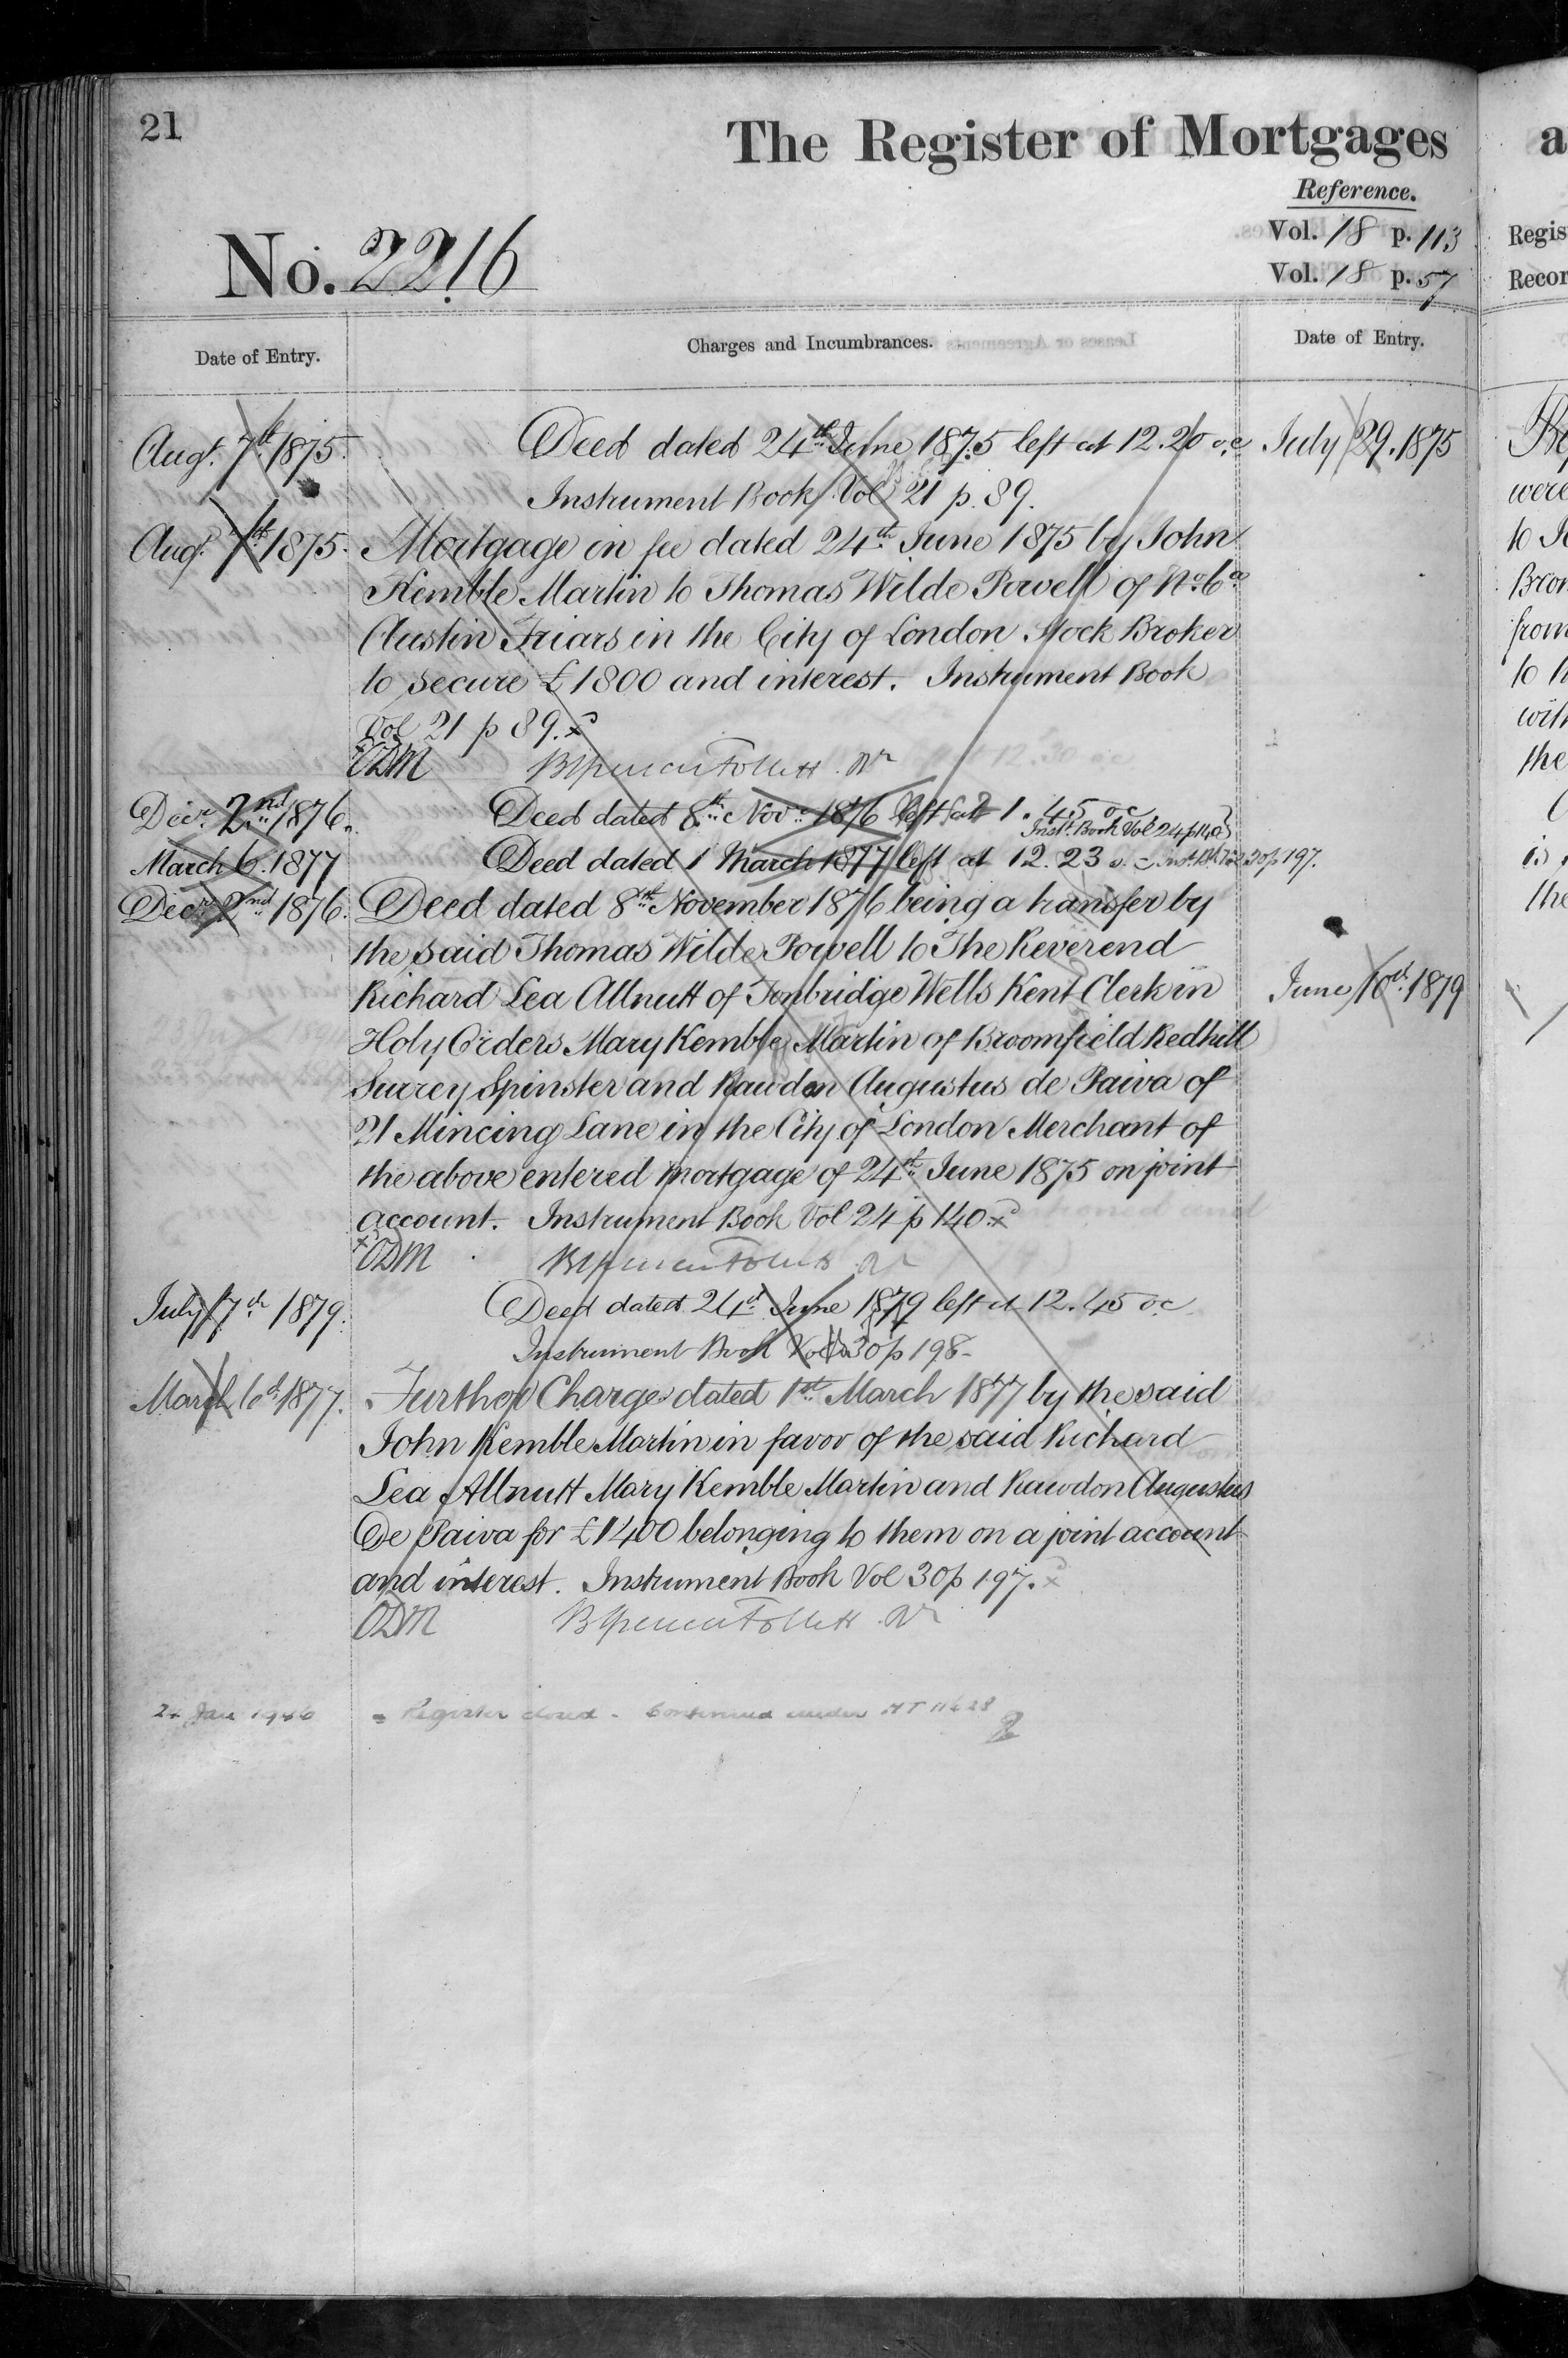 21
The Register of Mortgages
Reference.
No. 2216
Vol. 18 p. 113
Vol. 18 p. 57
Date of Entry.
Charges and Incumbrances.
Date of Entry.
Augt. 7th 1875.
Deed dated 24th June 1875 left at 12.20 oc
Instrument Book Vol 21 p. 89.
July 29. 1875
Augt. 7th 1875.
Mortgage in fee dated 24th June 1875 by John
Kemble Martin to Thomas Wilde Powell of No. 6a
Austin Friars in the City of London Stock Broker
to secure £1800 and interest. Instrument Book
Vol 21 p 89. x
x ODM
Decr. 2nd 1876.
Deed dated 8th Novr 1876 left at 1.45 oc
Inst. Book Vol 24 p 140
March 6. 1877
Deed dated 1 March 1877 left at 12.23 oc Inst. Bk Vol 30 p 197.
Decr 2nd 1876.
Deed dated 8th November 1876 being a transfer by
the said Thomas Wilde Powell to The Reverend
Richard Lea Allnutt of Tonbridge Wells Kent Clerk in
Holy Orders Mary Kemble Martin of Broomfield Redhill
Surrey Spinster and Rawdon Augustus de Paiva of
21 Mincing Lane in the City of London Merchant of
the above entered mortgage of 24th June 1875 on joint
account. Instrument Book Vol 24 p 140. x
x ODM
June 10th 1879
July 7th 1879.
Deed dated 24th June 1879 left at 12.45 oc
Instrument Book Vol 30 p 198
March 6th 1877.
Further Charge dated 1st March 1877 by the said
John Kemble Martin in favor of the said Richard
Lea Allnutt Mary Kemble Martin and Rawdon Augustus
De Paiva for £1400 belonging to them on a joint account
and interest. Instrument Book Vol 30 p 197. x
ODM
Register closed - Continued under
a
Regis
Recor
were
to
from
to
with
the
is
the